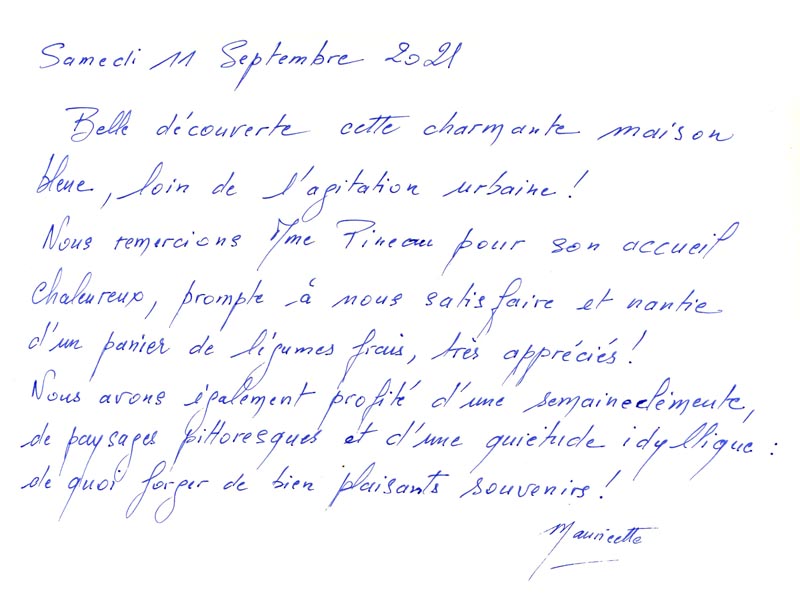 Samedi 11 Septembre 2021
Belle découverte cette charmante maison
bleue, loin de l'agitation urbaine !
Nous remercions Mme Pineau pour son accueil
chaleureux, prompte à nous satisfaire et nantie
d'un panier de légumes frais, très appréciés !
Nous avons également profité d'une semaine clémente,
de paysages pittoresques et d'une quiétude idyllique :
de quoi forger de bien plaisants souvenirs !
Mauricette